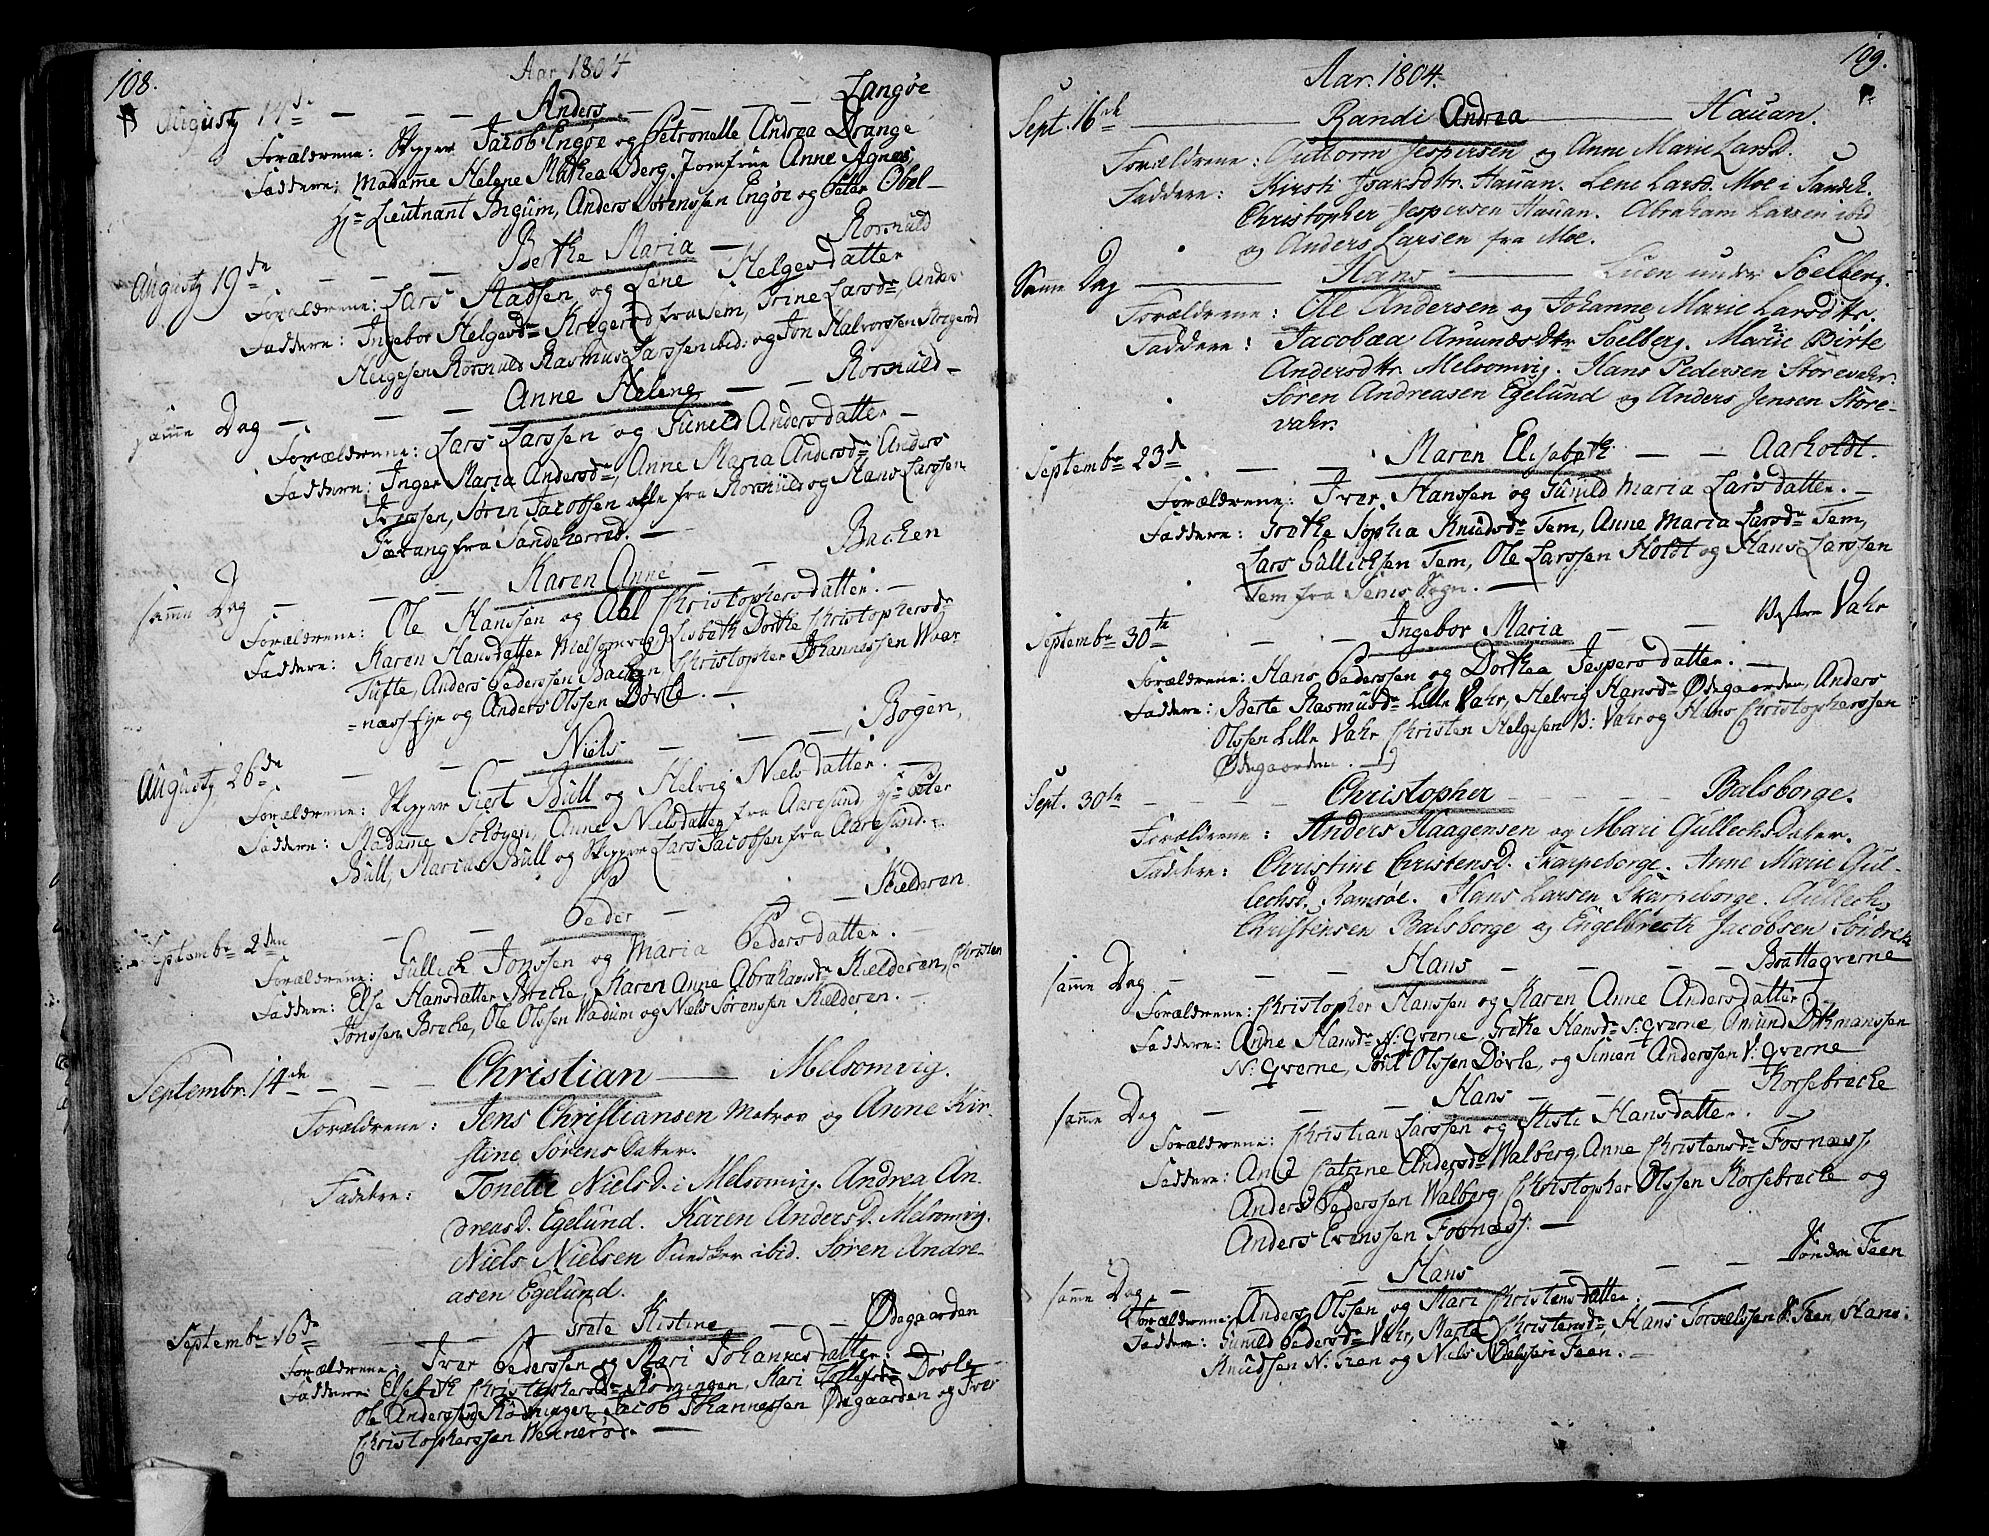 108.
Aar 1804
Augusty 14de — — — Anders — — — Langøe
Forældrene: Skipper Jacob Engøe og Petronelle Andrea Drange
Faddere: Madame Helene Mathea Berg, Jomfrue Anne Agnes,
Hr Lieutnant Bigum, Anders Sørenssen Engøe og Peter Obel-
Augusty 19de — — — Bethe Maria — Rorsuld
Forældrene: Lars Madsen og Lene Helgesdatter
Faddere: Ingebor Helgesdr Kregerød fra Sem, Trine Larsdr, Anders
Helgesen Rorsuld Rasmus Larssen ibid. og Jon Halvorssen Kregerød
samme Dag — — — Anne Helene — — Rorsuld —
Forældrene: Lars Larssen og Gunild Andersdatter —
Faddere: Inger Maria Andersdr, Anne Maria Andersdr Anders
Iverssen, Sören Jacobssen alle fra Rorsuld og Hans Larssen
Tærang fra Sandeherred. —
samme Dag — — — Karen Anne — — Backen
Forældrene: Ole Hanssen og Abel Christophersdatter. —
Faddere: Karen Hansdatter Melsomvig, Lisbeth Dorthe Christophersdr
Tufte, Anders Pederssen Backen Christopher Johannessen Waar
-næss Eje og Anders Olssen Døvle. —
Augusty 26de — — Niels — — — Bogen,
Forældrene: Skipper Giert Bull og Helvig Nielsdatter. —
Faddere: Madame Schøyen, Anne Nielsdatter fra Aarøsund, Hr Peter
Bull, Marius Bull og Skipper Lars Jacobsen fra Aarøsund. —
Septembr 2den — — Peder — — — Kielderen
Forældrene: Gullick Jonssen og Maria Pedersdatter. —
Faddere: Else Hansdatter Brecke, Karen Anne Abrahamsdr Kielderen, Christen
Jonssen Brecke, Ole Olssen Wadum og Niels Sørenssen Kielderen. —
Septembr. 14de — — — Christian — Melsomvig.
Forældrene: Jens Christiansen Matros og Anne Kir-
stine SørensDatter.
Faddere: Tonette NielsD. i Melsomvig. Andrea An-
dreasD. Egelund. Karen AndersD. Melsomvig.
Niels Nielsen Snedker ibid. Søren Andre-
asen Egelund.
Septembr 16de — — Grete Kistine — — Ødegaarden
Forældrene: Iver Pederssen og Mari Johannesdatter. —
Faddere: Elsebeth Christophersdr Rødningen, Mari Tollefsdr Døvle
Ole Anderssen Rødningen Jacob Johannessen Ødegaarden og Iver
Christopherssen Wennerød. —
109.
Aar. 1804.
Sept. 16de — Randi Andrea — Hauan.
Forældrene: Guttorm Jespersen og Anne Marie Larsd.
Faddere: Kirsti Isaksdtr. Hauan. Lene Larsd. Moe i Sandeh.
Christopher Jespersen Hauan. Abraham Larsen ibid
og Anders Larsen fra Moe.
Samme Dag — Hans — Luen under Soelberg.
Forældrene: Ole Andersen og Johanne Marie Larsdttr.
Faddere: Jacobæa Amundsdtr Soelberg. Marie Birte
Andersdtr. Melsomvig. Hans Pedersen Storevahr.
Søren Andreasen Egelund og Anders Jensen Store-
vahr.
Septembr 23de — — Maren Elisabeth — — Aarholdt.
Forældrene: Iver Hanssen og Gunild Maria Larsdatter. —
Faddere: Grethe Sophia Knudsdr Tem, Anne Maria Larsdr Tem,
Lars Gullichsen Tem, Ole Larssen Holdt og Hans Larssen
Tem fra Sems Sogn. —
Septembr 30te — — Ingebor Maria — — Westre Vahr
Forældrene: Hans Pederssen og Dorthea Jespersdatter. —
Faddere: Berte Rasmusdr Lille Vahr, Helvig Hansdr Ødegaarden, Anders
Olssen Lille Vahr Christen Helgesen V: Vahr og Hans Christopherssen
Ødegaarden. —
Sept. 30te — — — Christopher — — — Balsborge.
Forældrene: Anders Haagensen og Mari GullechsDater.
Faddere: Christine ChristensD. Skarpeborge. Anne Marie Gul-
lechsD. Ramsøe. Hans Larsen Skarpeborge. Gullech
Christensen Balsborge og Engelbrecth Jacobsen
samme Dag — — — Hans — — — Brattegverne
Forældrene: Christopher Hanssen og Karen Anne Andersdatter
Faddere: Anne Hansdr N: Gverne, Grethe Hansdr N: Gverne, Amund Ditmanssen
N: Gverne, Joul Olssen Døvle, og Simen Anderssen V: Gverne
samme Dag — — — Hans — — Korsebrecke
Forældrene: Christian Larssen og Kisti Hansdatter.
Faddere: Ane Catrine Andersdr Walberg, Anne Christensdr Fossnæss,
Anders Pederssen Walberg, Christopher Olssen Korsebrecke og
Anders Evenssen Fossnæss. —
samme Dag — — — Hans — — — Søndre Feen
Forældrene: Anders Olssen og Mari Christensdatter.
Faddere: Gunild Pedersdr Vahr, Marte Christensdr, Hans S: Feen, Hans
Knudsen N: Feen og Niels Feen. —